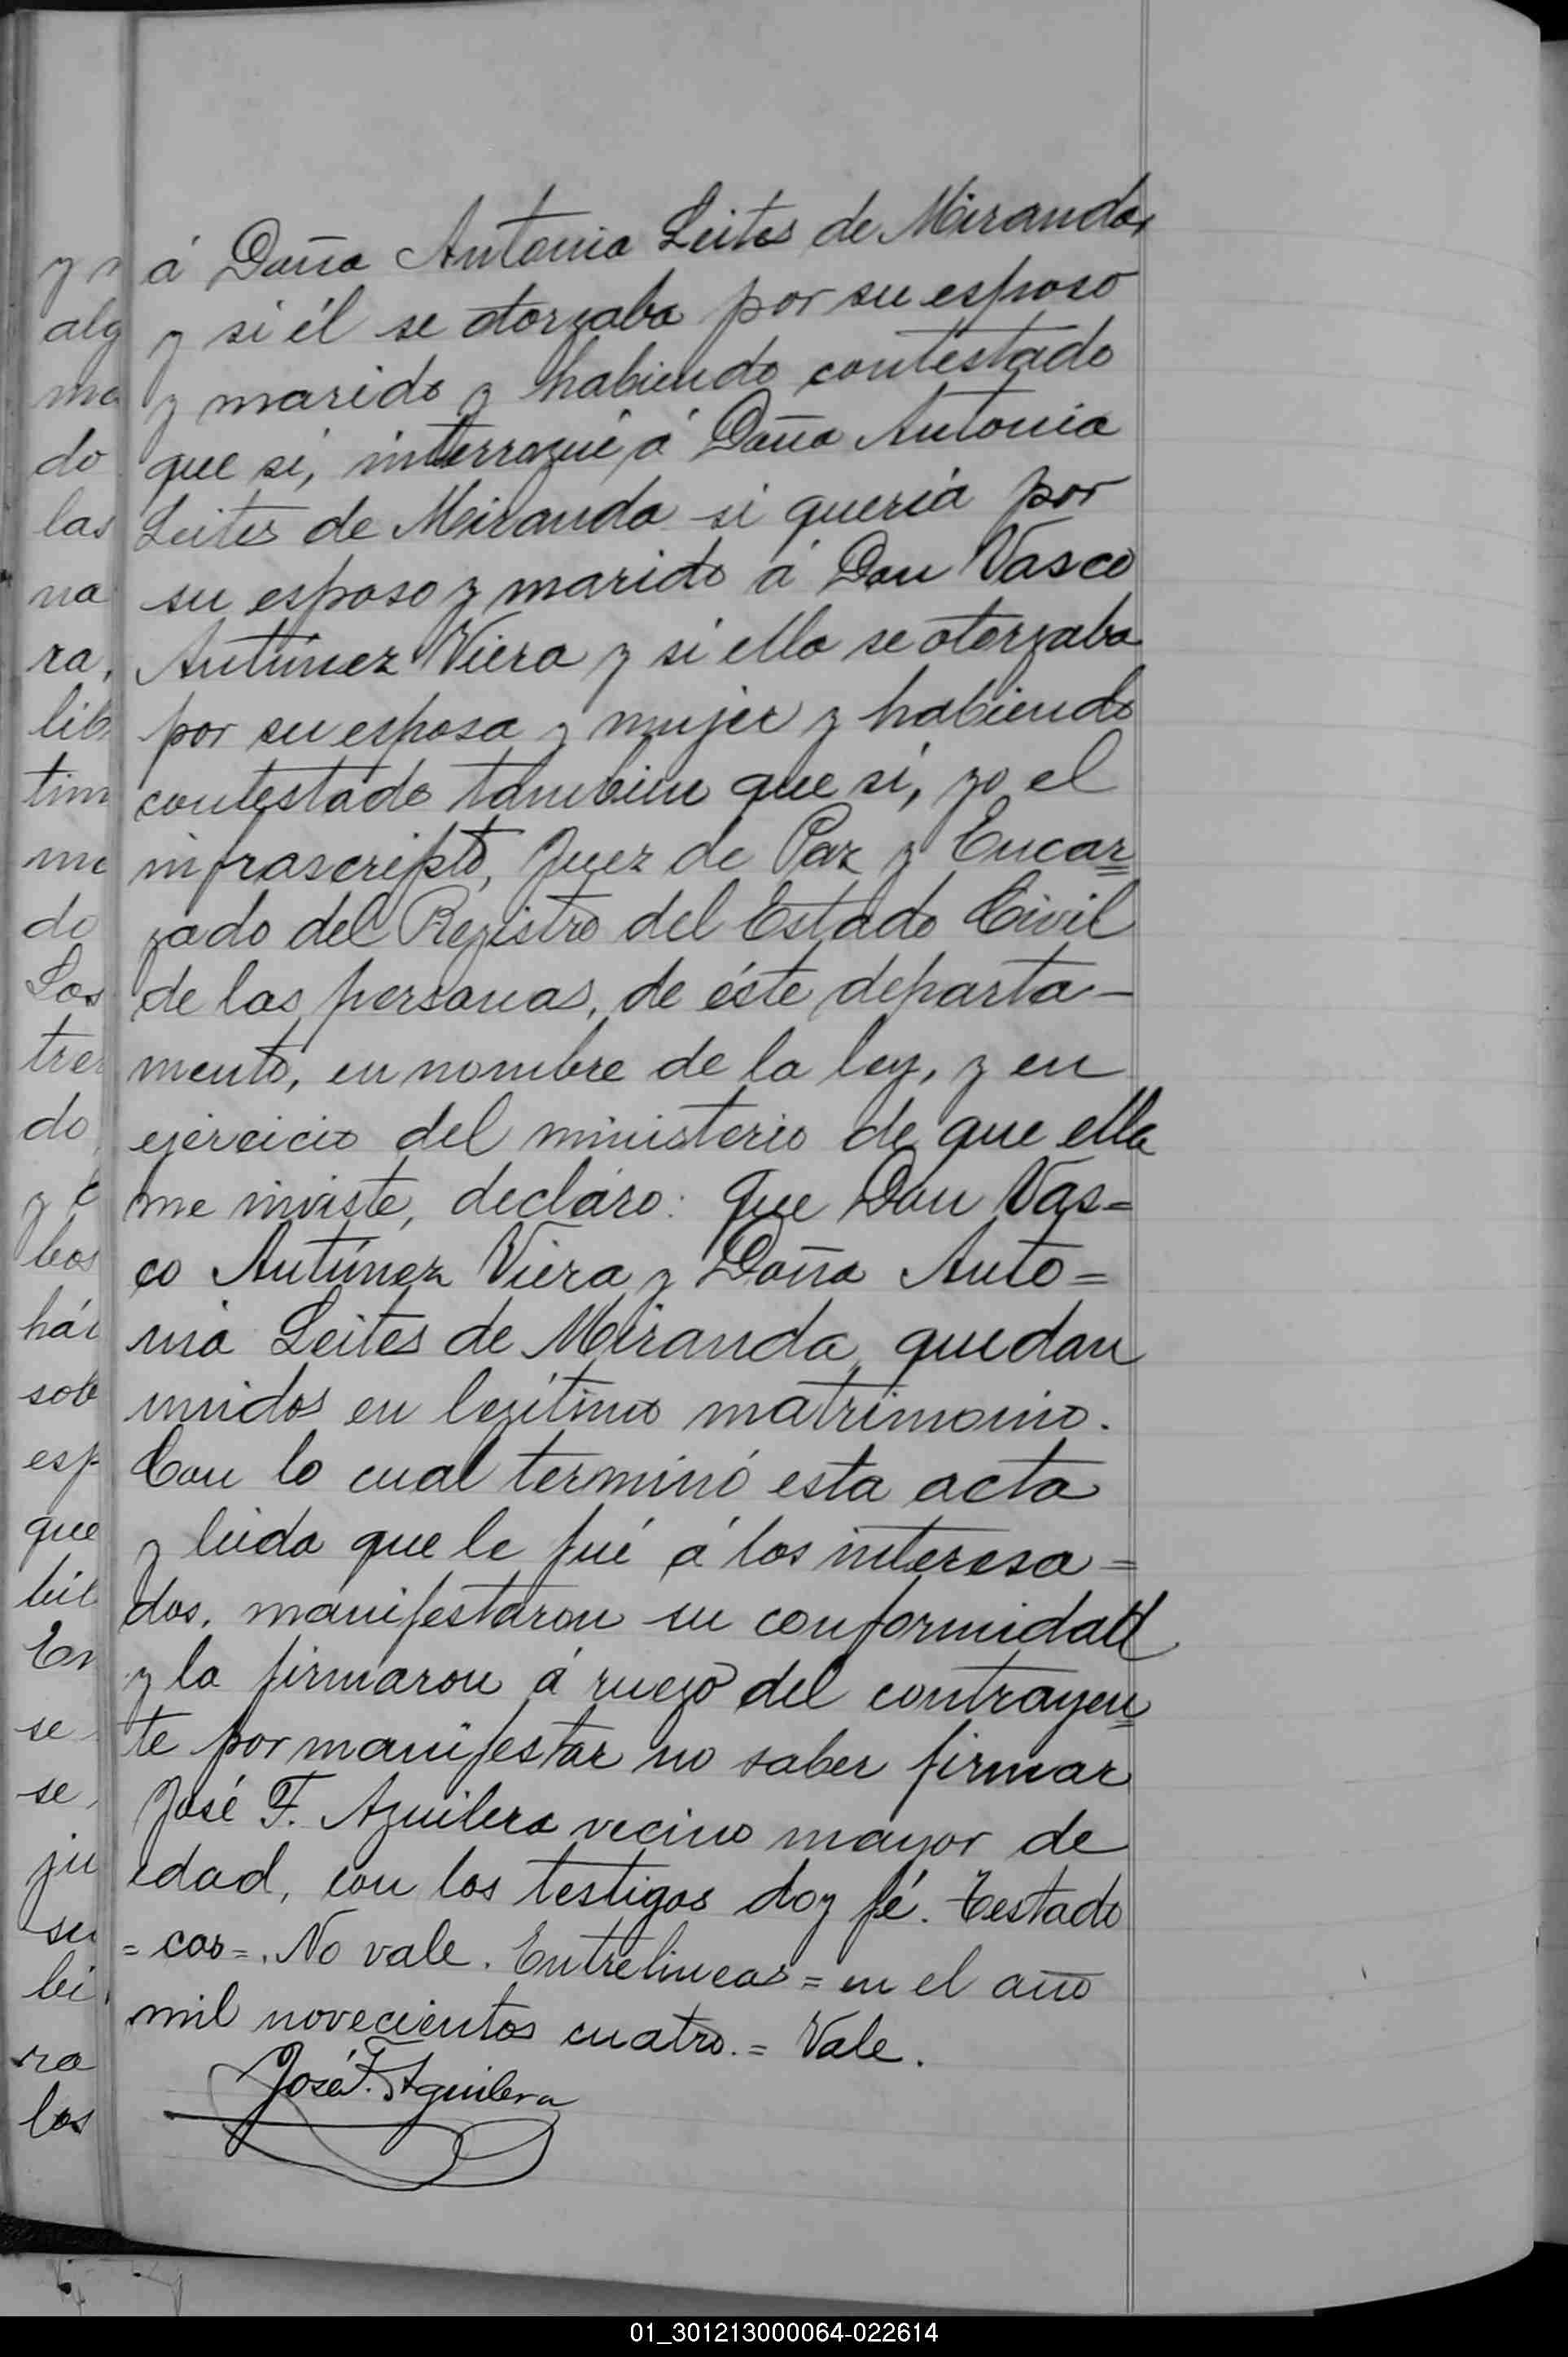 á Doña Antonia Leites de Miranda,
y si él se otorgaba por su esposo
y marido y habiendo contestado
que si, interrogué á Doña Antonia
Leites de Miranda si queria por
su esposo y marido á Don Vasco
Antúnez Viera y si ella se otorgaba
por su esposa y mujer y habiendo
contestado tambien que si, yo el
infrascripto, Juez de Paz y Encar=
gado del Registro del Estado Civil
de las personas, de éste departa-
mento, en nombre de la ley, y en
ejercicio del ministerio de que ella
me inviste, declaro: que Don Vas=
co Antúnez Viera y Doña Anto=
nia Leites de Miranda quedan
unidos en legítimo matrimonio.
Con lo cual terminó esta acta
y leida que le fué á los interesa=
dos, manifestaron su conformidad
y la firmaron á ruego del contrayen=
te por manifestar no saber firmar
José F. Aguilera vecino mayor de
edad, con los testigos doy fé. Testado
=cos=. No vale. Entrelineas = en el año
mil novecientos cuatro.= Vale.
José F. Aguilera
alg
do
las
na
ra,
do
Los
do
sob
esp
que
se
se,
ju
su
ra
los
01_301213000064-022614